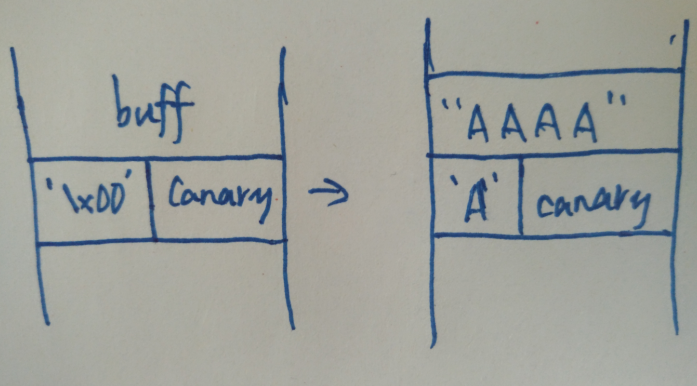 buff
'\x00' Canary
→
"AAAA"
'A' canary